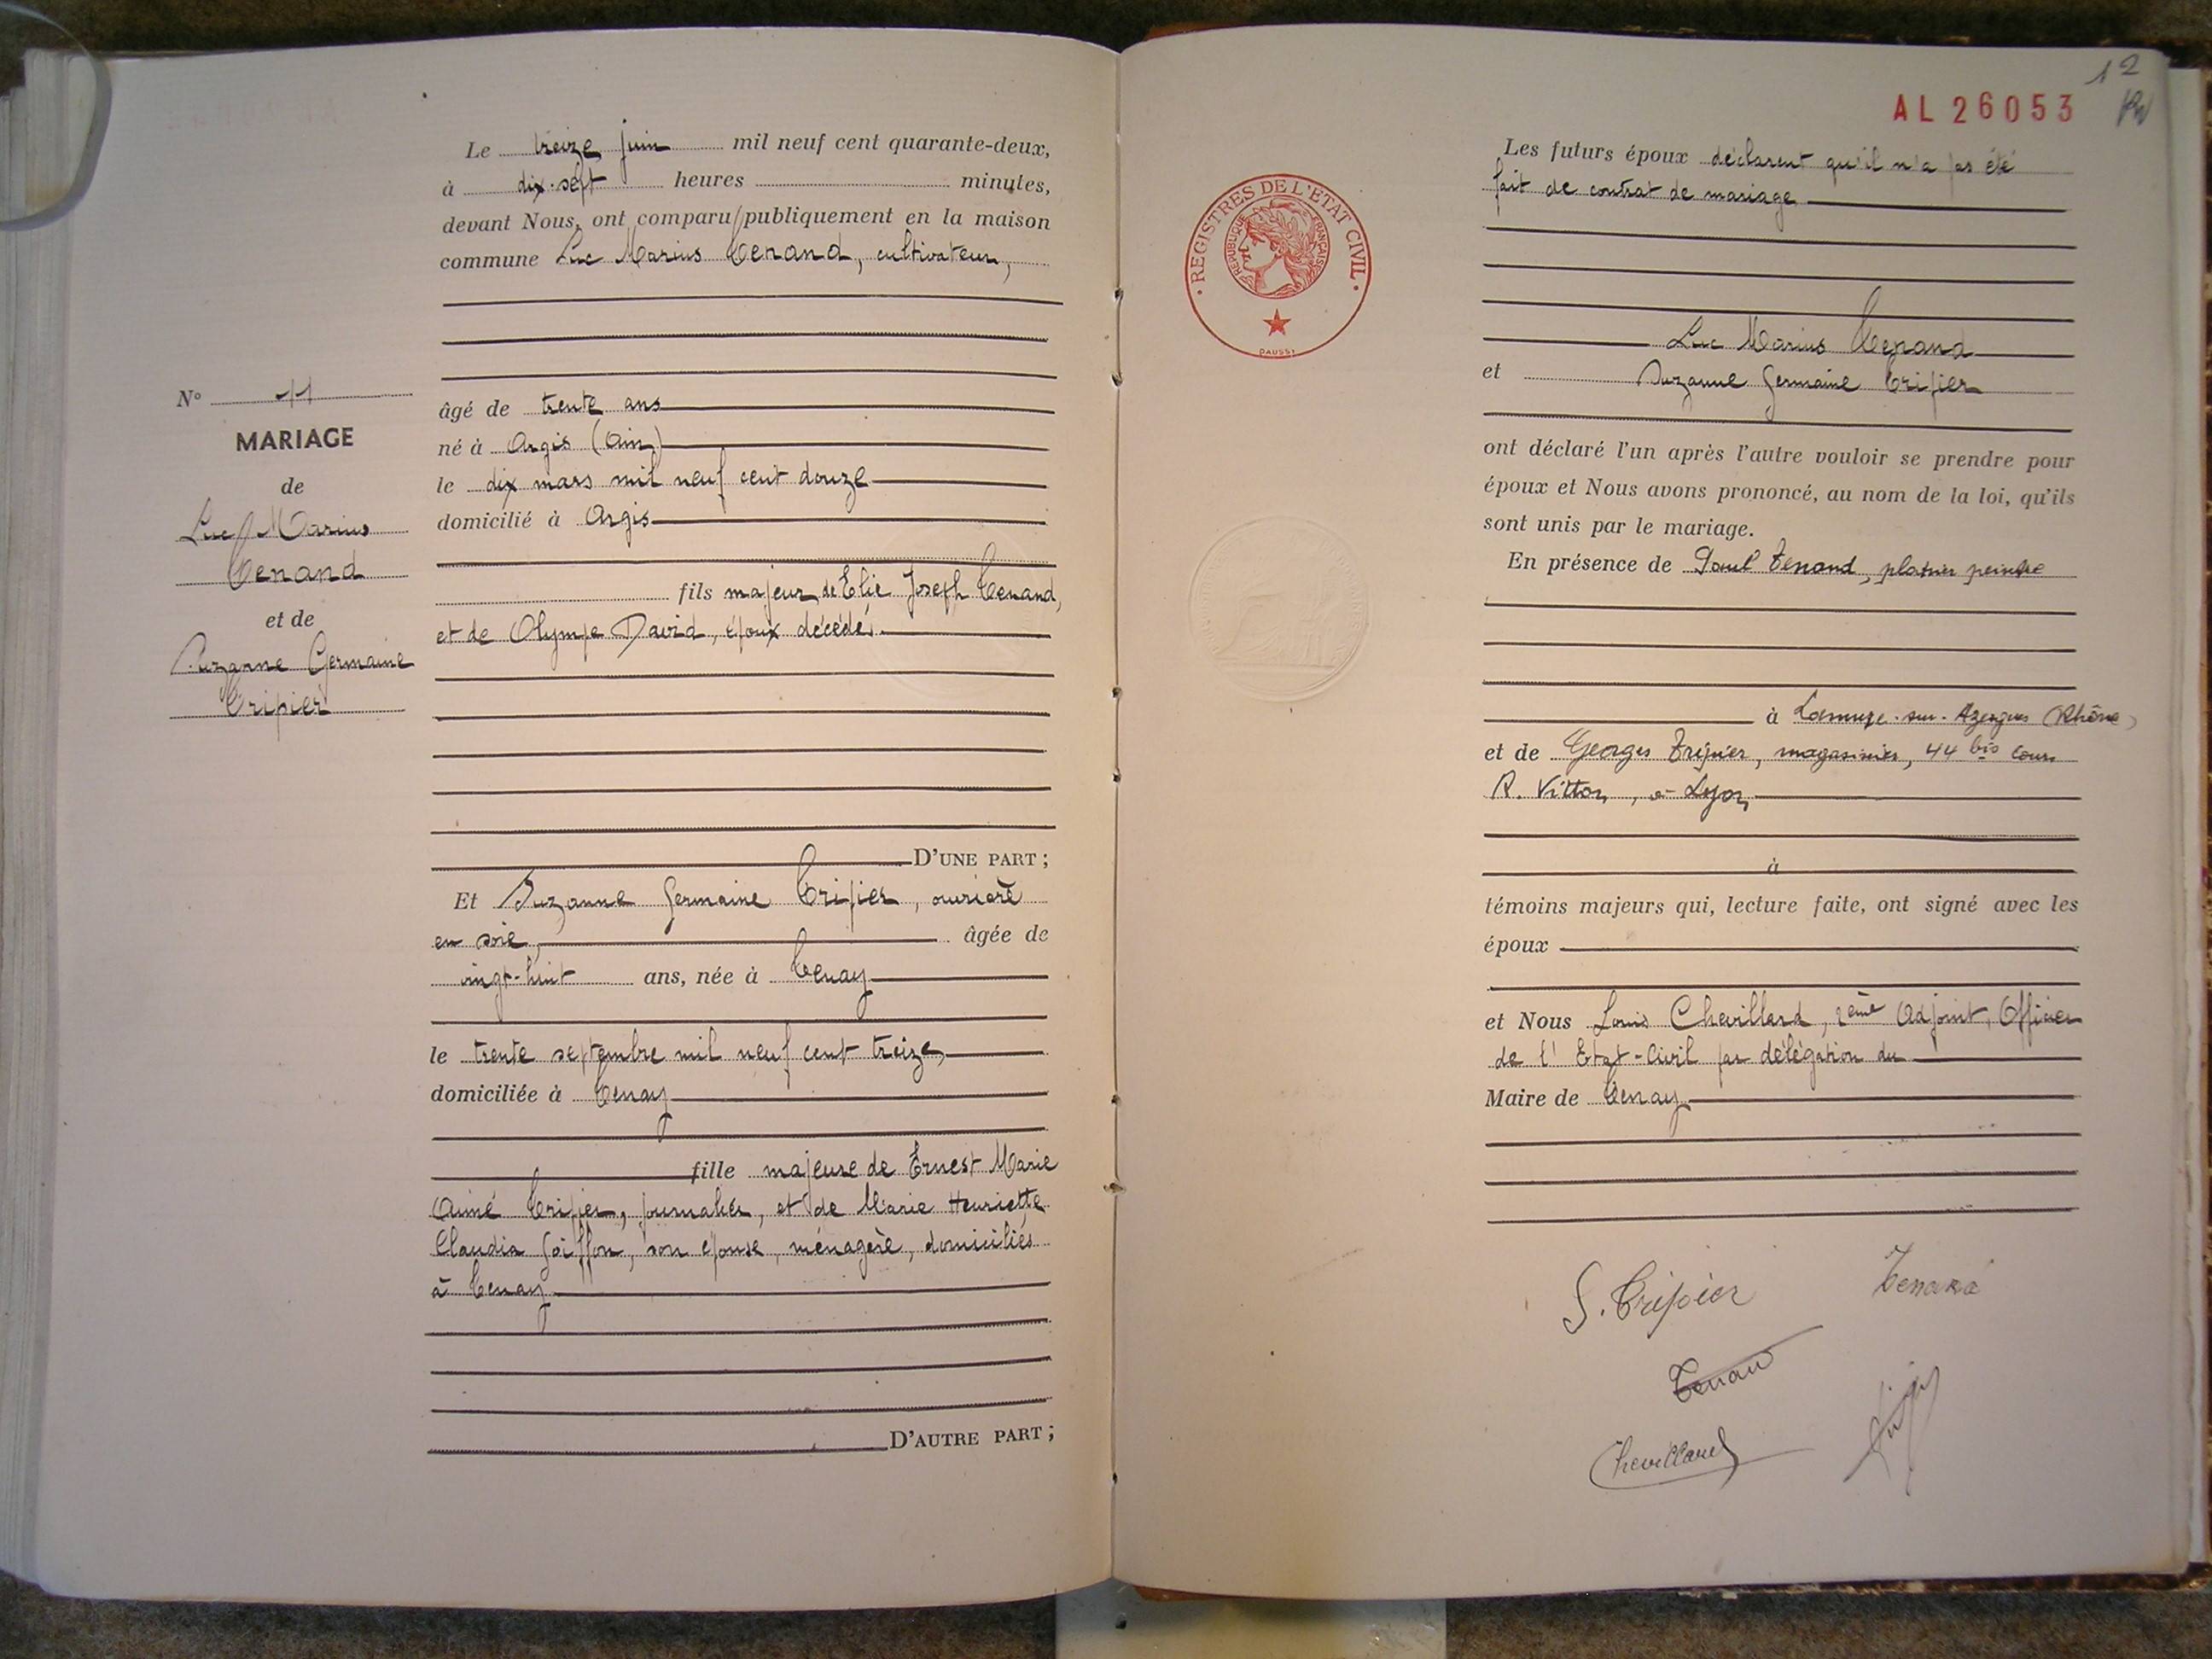 Le treize juin mil neuf cent quarante-deux,
à dix-sept heures minutes,
devant Nous, ont comparu publiquement en la maison
commune Luc Marius Tenand, cultivateur,
N° 11
MARIAGE
de
Luc Marius
Tenand
et de
Suzanne Germaine
Tripier
âgé de trente ans
né à Argis (Ain)
le dix mars mil neuf cent douze
domicilié à Argis
fils majeur de Elie Joseph Tenand,
et de Olympe David, époux décédés.
D'UNE PART ;
Et Suzanne Germaine Tripier, ouvrière
en soie, âgée de
vingt-huit ans, née à Tenay
le trente septembre mil neuf cent treize,
domiciliée à Tenay
fille majeure de Ernest Marie
Aimé Tripier, journalier, et de Marie Henriette
Claudia Goiffon, son épouse, ménagère, domiciliés
à Tenay
D'AUTRE PART ;
12
AL 26053
REGISTRES DE L'ETAT CIVIL
REPUBLIQUE FRANÇAISE
DAUSSY
Les futurs époux déclarent qu'il n'a pas été
fait de contrat de mariage
Luc Marius Tenand
et Suzanne Germaine Tripier
ont déclaré l'un après l'autre vouloir se prendre pour
époux et Nous avons prononcé, au nom de la loi, qu'ils
sont unis par le mariage.
En présence de Paul Tenand, platrier peintre
à sur-Azergues (Rhône)
et de Georges Tripier, magasinier, 44 bis cours
R. Vitton, à Lyon
à
témoins majeurs qui, lecture faite, ont signé avec les
époux
et Nous Louis Chevillard, 2ème Adjoint, Officier
de l'Etat-Civil par délégation du
Maire de Tenay
S. Tripier Tenand
Tenand
Chevillard